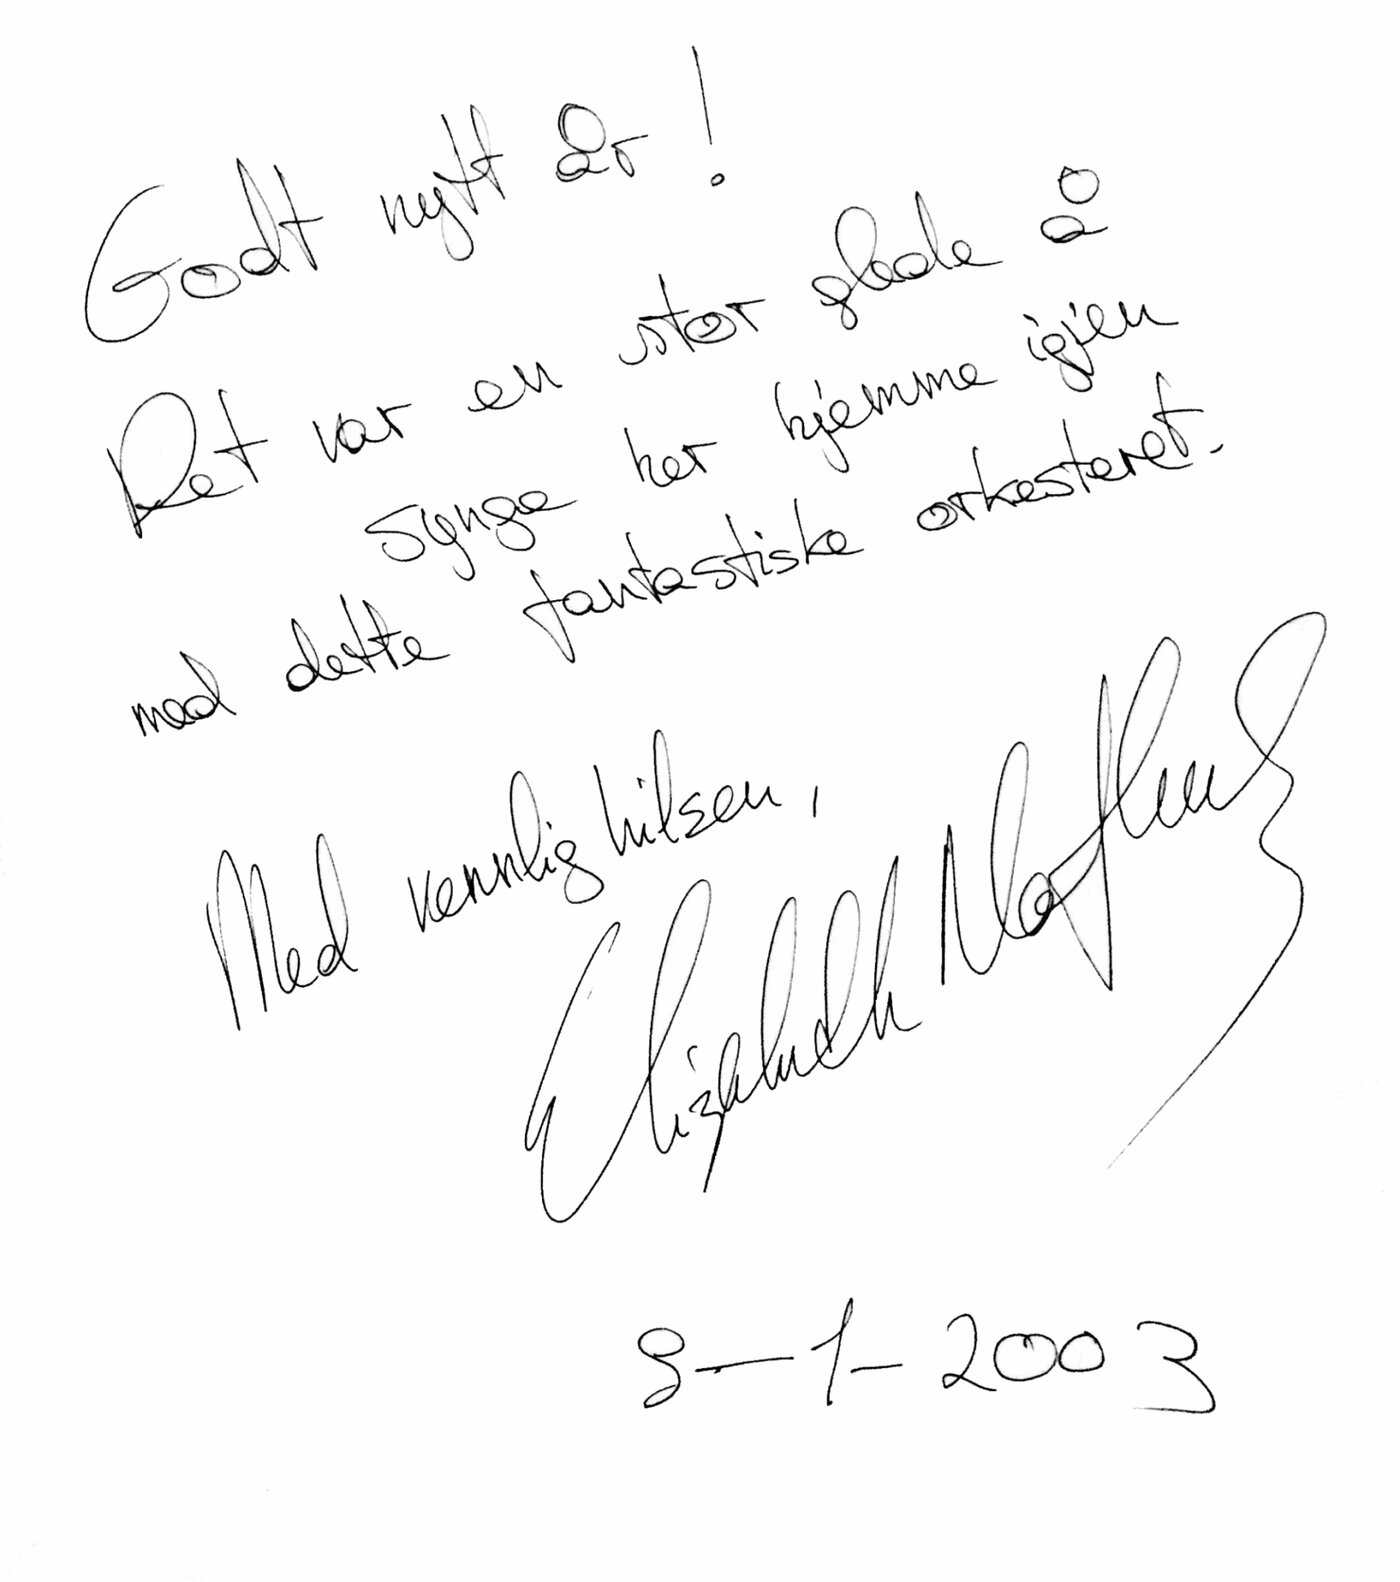 Godt nytt år!
Det var en stor glede å
synge her hjemme igjen
med dette fantastiske orkesteret.
Med vennlig hilsen,
Elizabeth Norberg-Schulz
8-1-2003